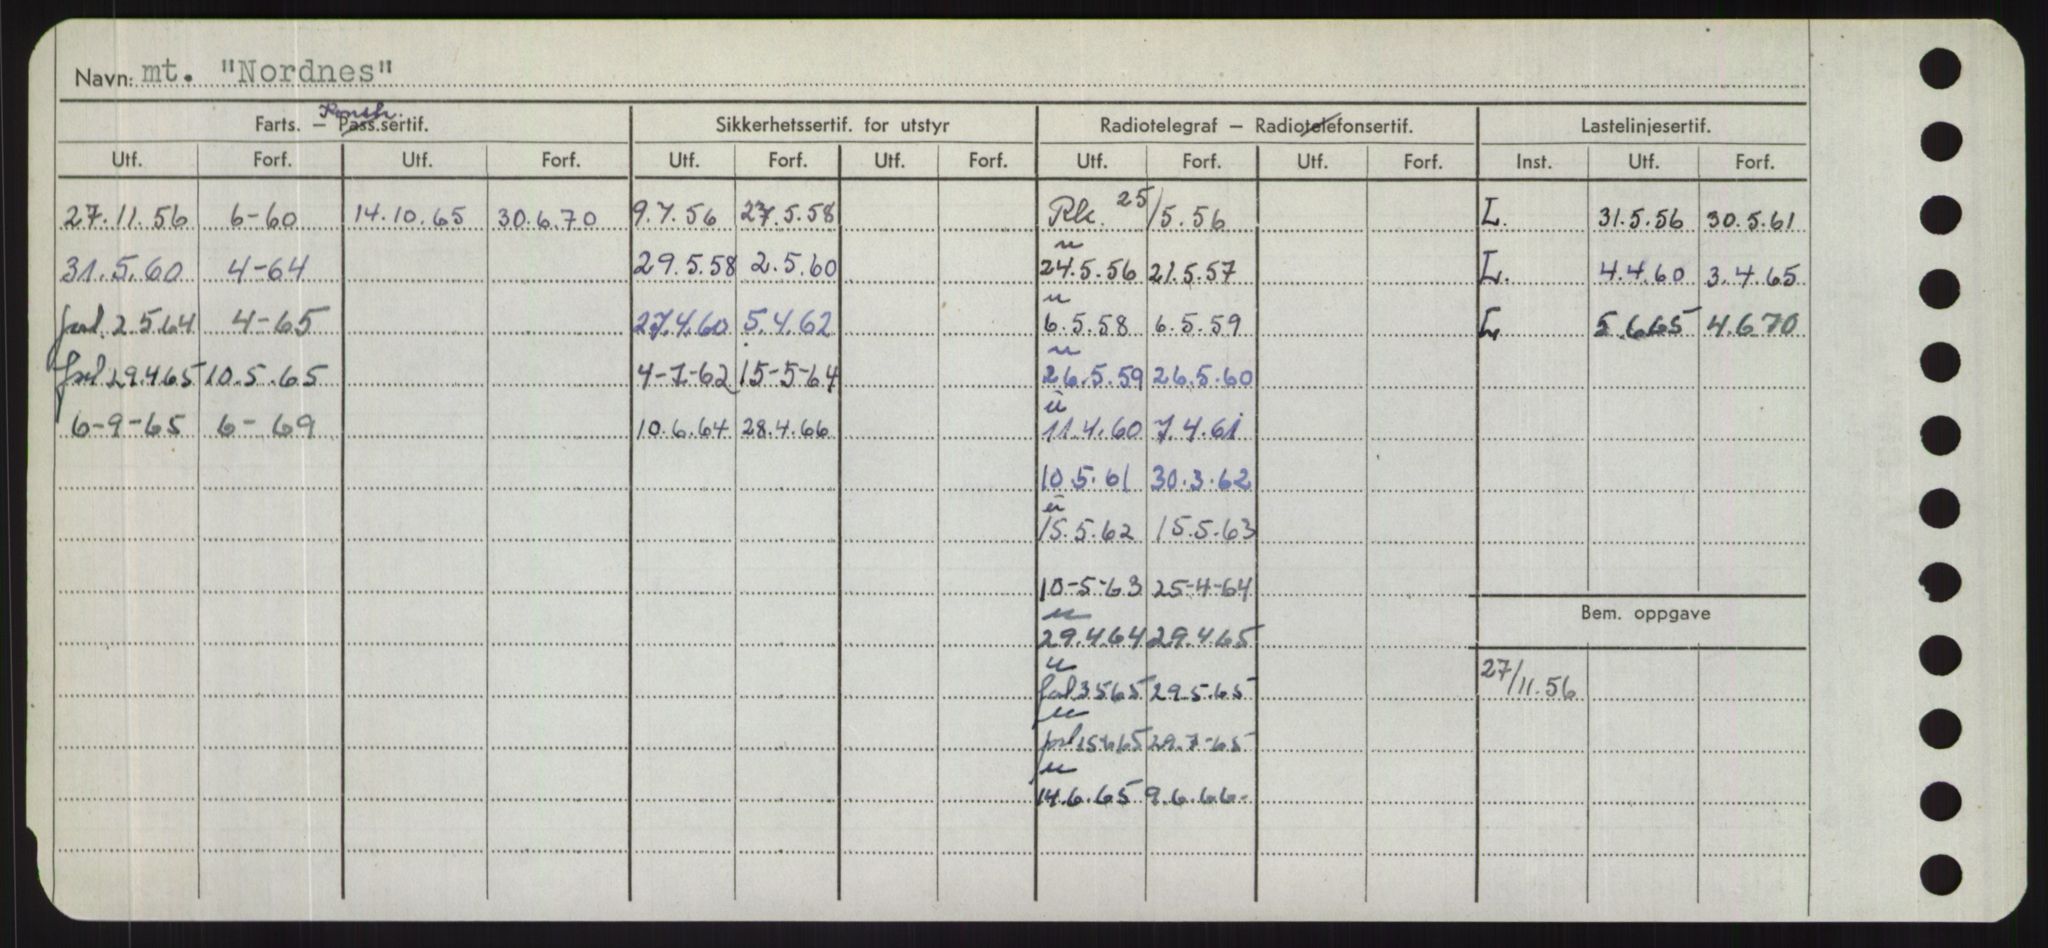 Navn: mt. "Nordnes"
Konstr.
Farts. – Pass.sertif. Sikkerhetssertif. for utstyr Radiotelegraf – Radiotelefonsertif. Lastelinjesertif.
Utf. Forf. Utf. Forf. Utf. Forf. Utf. Forf. Utf. Forf. Utf. Forf. Inst. Utf. Forf.
27.11.56 6-60 14.10.65 30.6.70 9.7.56 27.5.58 Rk. 25/5.56 L. 31.5.56 30.5.61
31.5.60 4-64 29.5.58 2.5.60 24.5.56 21.5.57 L. 4.4.60 3.4.65
2.5.64 4-65 27.4.60 5.4.62 6.5.58 6.5.59 L 5.6.65 4.6.70
29.4.65 10.5.65 4-7-62 15-5-64 26.5.59 26.5.60
6-9-65 6-69 10.6.64 28.4.66 11.4.60 7.4.61
10.5.61 30.3.62
15.5.62 15.5.63
10-5-63 25-4-64
Bem. oppgave
29.4.64 29.4.65
3565 29.5.65 27/11.56
29.7-65
14.6.65 9.6.66-